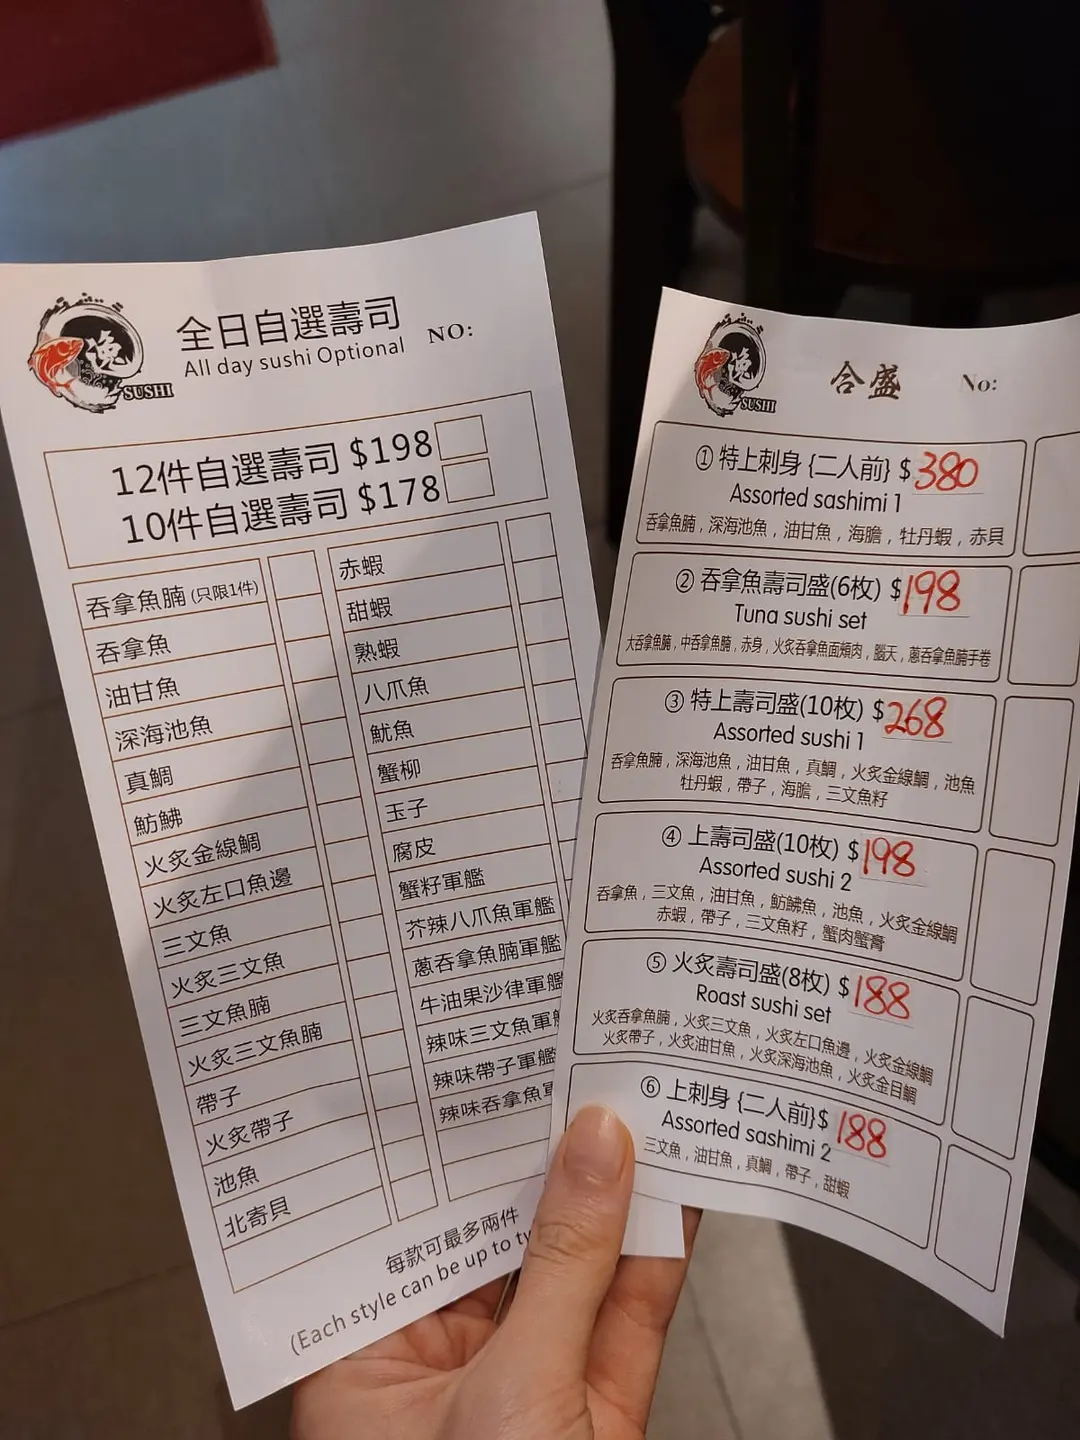 逸
SUSHI
全日自選壽司
All day sushi Optional
NO:
12件自選壽司 $198
10件自選壽司 $178
吞拿魚腩 (只限1件)
吞拿魚
油甘魚
深海池魚
真鯛
魴鮄
火炙金線鯛
火炙左口魚邊
三文魚
火炙三文魚
三文魚腩
火炙三文魚腩
帶子
火炙帶子
池魚
北寄貝
赤蝦
甜蝦
熟蝦
八爪魚
魷魚
蟹柳
玉子
腐皮
蟹籽軍艦
芥辣八爪魚軍艦
蔥吞拿魚腩軍艦
牛油果沙律軍艦
辣味三文魚軍艦
辣味帶子軍艦
辣味吞拿魚軍
每款可最多兩件
(Each style can be up to
逸
SUSHI
合盛
No:
① 特上刺身 {二人前} $380
Assorted sashimi 1
吞拿魚腩，深海池魚，油甘魚，海膽，牡丹蝦，赤貝
② 吞拿魚壽司盛(6枚) $198
Tuna sushi set
大吞拿魚腩，中吞拿魚腩，赤身，火炙吞拿魚面頰肉，腦天，蔥吞拿魚腩手卷
③ 特上壽司盛(10枚) $268
Assorted sushi 1
吞拿魚腩，深海池魚，油甘魚，真鯛，火炙金線鯛，池魚
牡丹蝦，帶子，海膽，三文魚籽
④ 上壽司盛(10枚) $198
Assorted sushi 2
吞拿魚，三文魚，油甘魚，魴鮄魚，池魚，火炙金線鯛
赤蝦，帶子，三文魚籽，蟹肉蟹膏
⑤ 火炙壽司盛(8枚) $188
Roast sushi set
火炙吞拿魚腩，火炙三文魚，火炙左口魚邊，火炙金線鯛
火炙帶子，火炙油甘魚，火炙深海池魚，火炙金目鯛
⑥ 上刺身 {二人前}$ 188
Assorted sashimi 2
三文魚，油甘魚，真鯛，帶子，甜蝦